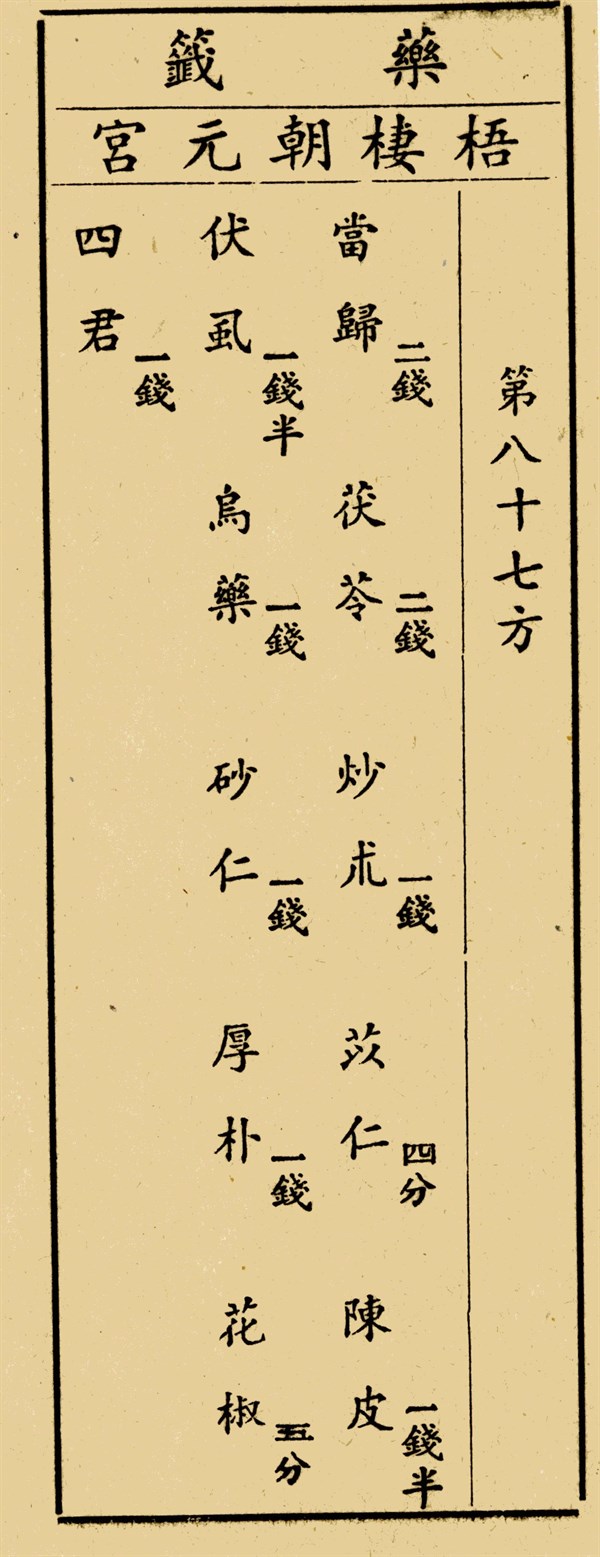 藥籤
梧棲朝元宮
第八十七方
當歸 二錢 茯苓 二錢 炒朮 一錢 苡仁 四分 陳皮 一錢半
伏虱 一錢半 烏藥 一錢 砂仁 一錢 厚朴 一錢 花椒 五分
四君 一錢